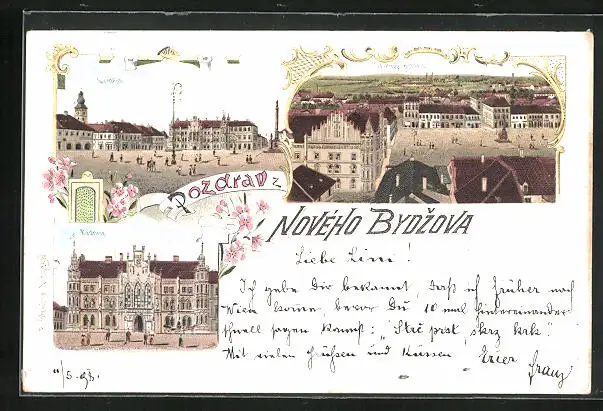 Pozdrav z
NOVÉHO BYDŽOVA
Radnice
Liebe Lini!
Ich gebe Dir bekannt, daß ich früher nach
Wien komme, bevor Du 10 mal hintereinander
schnell sagen kannst: „Strč prst skrz krk."
Mit vielen Grüßen und Küssen Euer
Franz
11/5. 98.